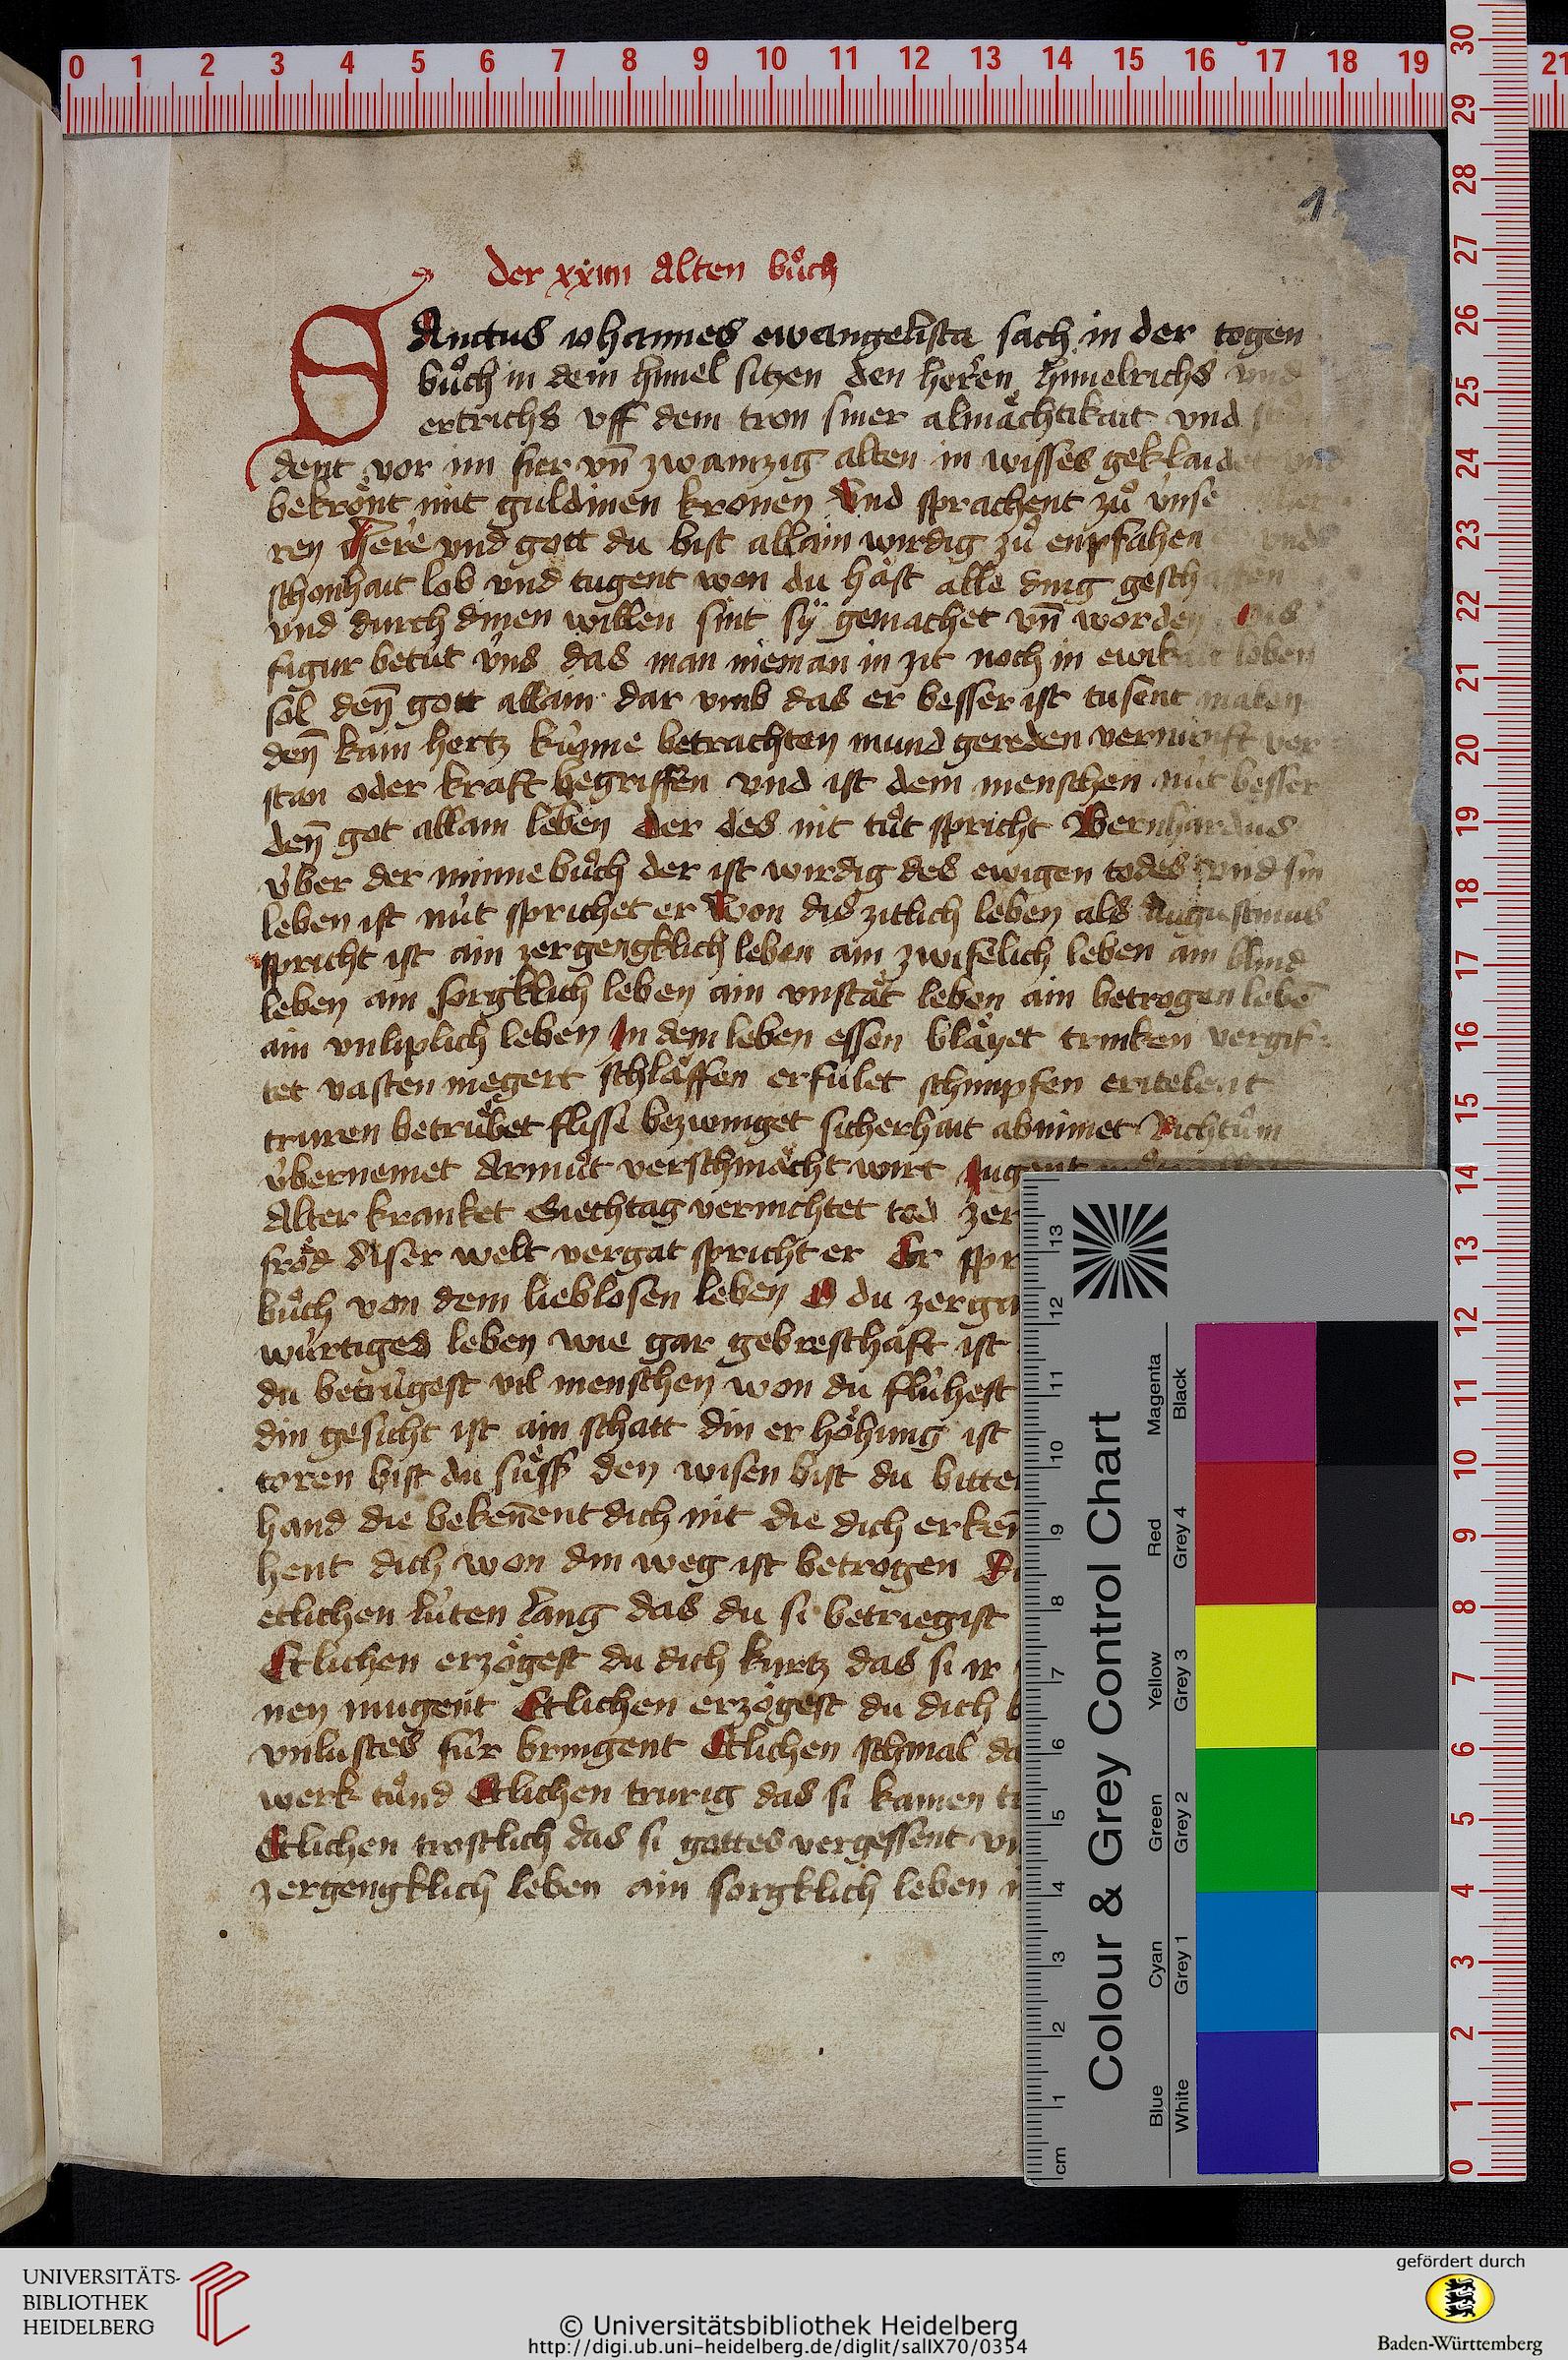 1
der xxiiii Alten bůch
SAnctus iohannes ewangelista sach in der togen
bůch in dem himel sitzen den heren himelrichs vnd
ertrichs vff dem tron siner almächtikait vnd
dent vor im fier vn̄ zwaintzig alten in wisses geklaidet vnd
bekrönt mit guldinen kronen Vnd sprachent zů vnse
ren Here vnd gott du bist allain wirdig zů enpfahen
schonhait lob vnd tugent won du häst alle ding geschaffen
vnd durch dinen willen sint sÿ gemachet vn̄ worden Dis
figur betut vns das man nieman in zit noch in ewikait loben
sol den̄ gott allain dar vmb das er besser ist tusent malen
den̄ kain hertz kunne betrachten mund gereden vernunft ver
stan oder kraft begriffen vnd ist dem menschen nut besser
den̄ got allain leben Der des nit tůt spricht Bernhardus
vber der minne bůch der ist wirdig des ewigen todes vnd sin
leben ist nut sprichet er Won dis zitlich leben als Augustinus
spricht ist ain zergengklich leben ain zwifelich leben ain blind
leben ain sorgklich leben ain vnstät leben ain betrogen lebē
ain vnliplich leben In dem leben essen bläyet trinken vergif
tet vasten megert schläffen erfulet schimpfen eritelent
truren betrübet flisse bezwinget sicherhait abnimet Richtům
vbernemet Armůt verschmächt wirt Iugent
Alter kranket Siechtag vernichtet tod zer
fröd diser welt vergat spricht er Er spr
bůch von dem lieblosen leben O du zerga
wurtiges leben wie gar gebresthaft ist
du betrugest vil menschen won du fluhest
din gesicht ist ain schatt din er höhung ist
toren bist du suess den wisen bist du bitte
hand die bekenēnt dich nit die dich erken̄
hent dich won din weg ist betrogen Du
etlichen luten lang das du si betriegist
Etlichen erzögest du dich kurtz das si ir
nen mugent Etlichen erzögest du dich b
vnlustes fur bringent Etlichen schmal da
werk tůnd Etlichen trurig das si kainen tr
Etlichen trostlich das si gottes vergessent vn
zergengklich leben ain sorgklich leben
0 1 2 3 4 5 6 7 8 9 10 11 12 13 14 15 16 17 18 19 21
30 29 28 27 26 25 24 23 22 21 20 19 18 17 16 15 14 13 12 11 10 9 8 7 6 5 4 3 2 1 0
13 12 11 10 9 8 7 6 5 4 3 2 1 cm
Colour & Grey Control Chart
Blue Cyan Green Yellow Red Magenta
White Grey 1 Grey 2 Grey 3 Grey 4 Black
UNIVERSITÄTS-
BIBLIOTHEK
HEIDELBERG
© Universitätsbibliothek Heidelberg
http://digi.ub.uni-heidelberg.de/diglit/salIX70/0354
gefördert durch
Baden-Württemberg